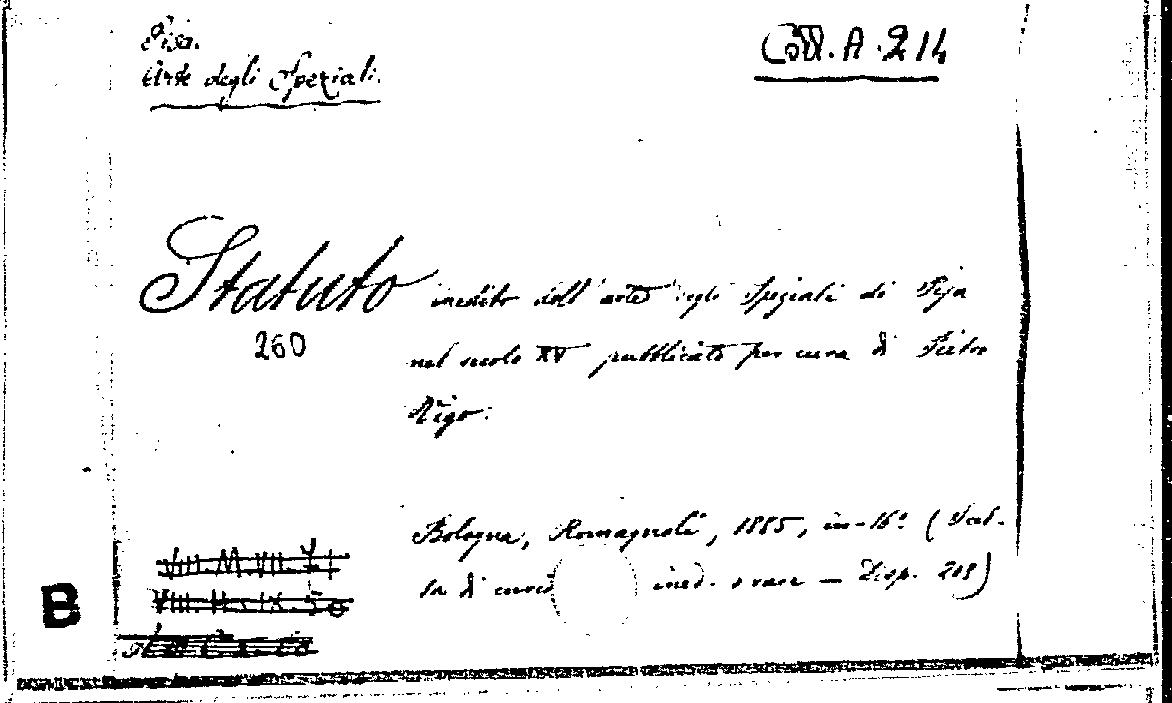 Pisa.
Arte degli Speziali.
Coll. A. 214
Statuto inedito dell'arte degli Speziali di Pisa
260
nel secolo XV pubblicato per cura di Pietro
Vigo.
Bologna, Romagnoli, 1885, in-16º (Scel-
ta di curio ined. o rare — Disp. 218)
VIII. M. VII. 21
VIII. H. IX. 50
B